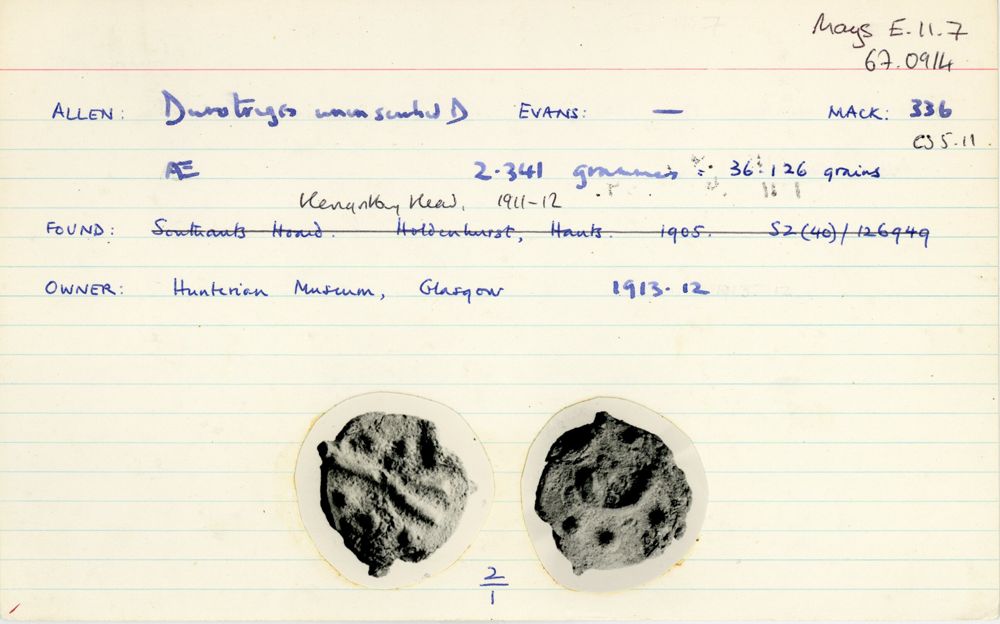 Mays E.11.7
67.0914
ALLEN: Durotriges uninscribed D EVANS: — MACK: 336
CJ 5.11
Æ 2.341 grammes = 36.126 grains
Hengistbury Head, 1911-12
FOUND: Southants Hoard. Holdenhurst, Hants. 1905. SZ(40)/126949
OWNER: Hunterian Museum, Glasgow 1913.12
2
1